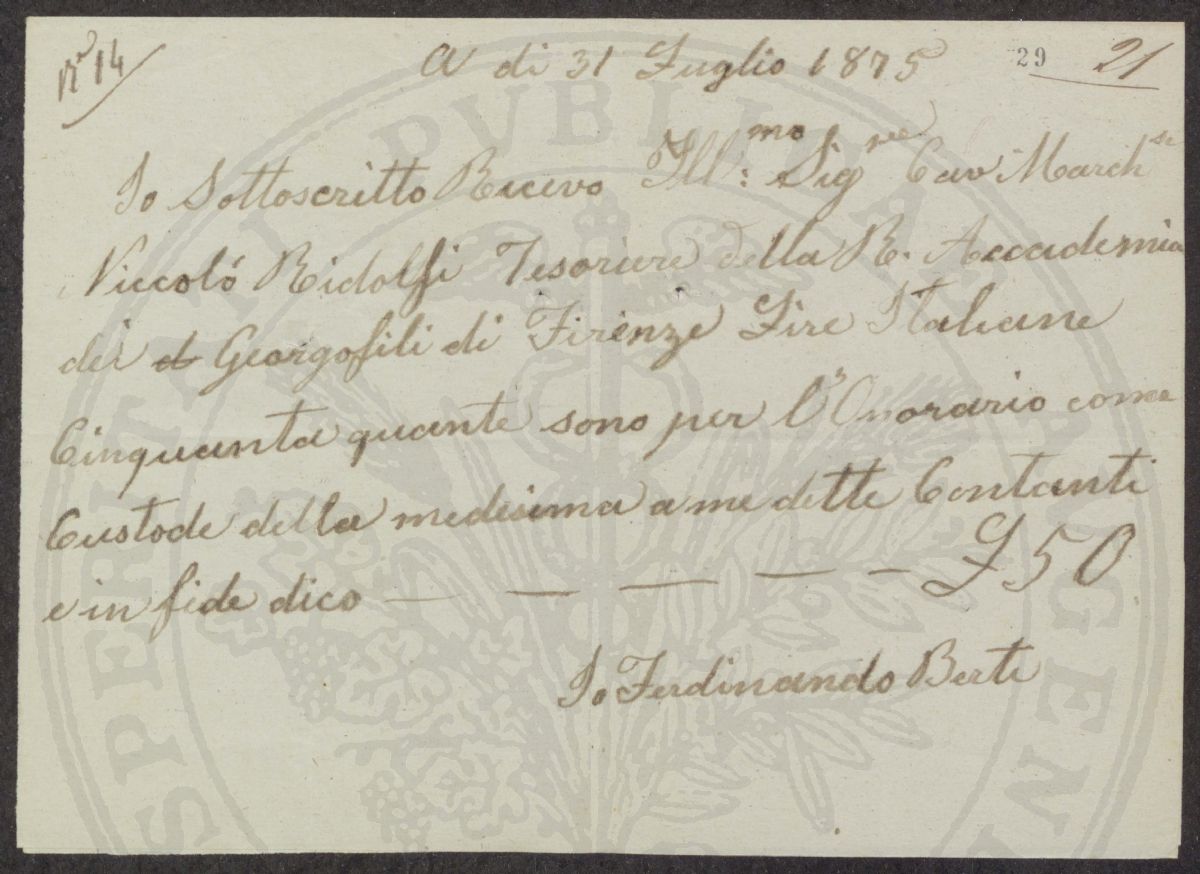 N° 14
A di 31 Luglio 1875
29 21
Io Sottoscritto Ricevo Ill:mo Sigre Cav Marchse
Niccoló Ridolfi Tesoriere della R. Accademia
dei d Georgofili di Firenze Lire Italiane
Cinquanta quante sono per l'Onorario come
Custode della medesima a me dette Contanti
e in fide dico — — — — — £ 50
Io Ferdinando Berti
PROSPERITATI PUBLICAE AUGENDAE